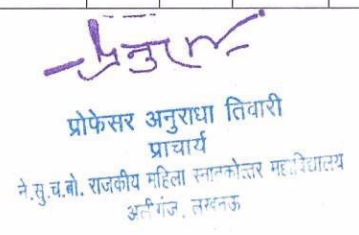 अनुरा
प्रोफेसर अनुराधा तिवारी
प्राचार्य
ने.सु.च.बो. राजकीय महिला स्नातकोत्तर महाविद्यालय
अलीगंज, लखनऊ